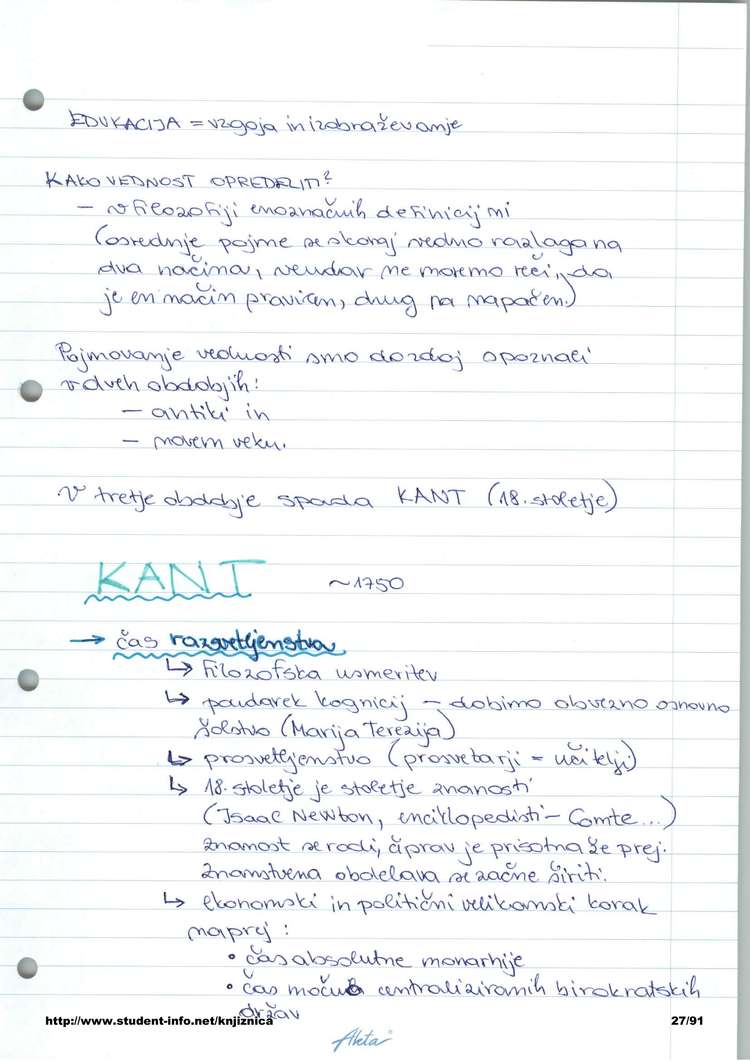 EDUKACIJA = vzgoja in izobraževanje
KAKO VEDNOST OPREDELITI?
– v filozofiji enoznačnih definicij ni
(osrednje pojme se skoraj vedno razlaga na
dva načina, vendar ne moremo reči, da
je en način pravilen, drug pa napačen.)
Pojmovanje vednosti smo dozdaj spoznali
v dveh obdobjih:
– antiki in
– novem veku.
V tretje obdobje spada KANT (18. stoletje)
KANT ~1750
→ čas razsvetljenstva
↳ filozofska usmeritev
↳ poudarek kogniciji – dobimo obvezno osnovno
šolstvo (Marija Terezija)
↳ prosvetljenstvo (prosvetarji = učitelji)
↳ 18. stoletje je stoletje znanosti
(Isaac Newton, enciklopedisti – Comte...)
Znanost se rodi, čiprav je prisotna že prej.
Znanstvena obdelava se začne širiti.
↳ ekonomski in politični velikanski korak
naprej:
• čas absolutne monarhije
• čas močnih centraliziranih birokratskih
držav
http://www.student-info.net/knjiznica 27/91
Akta